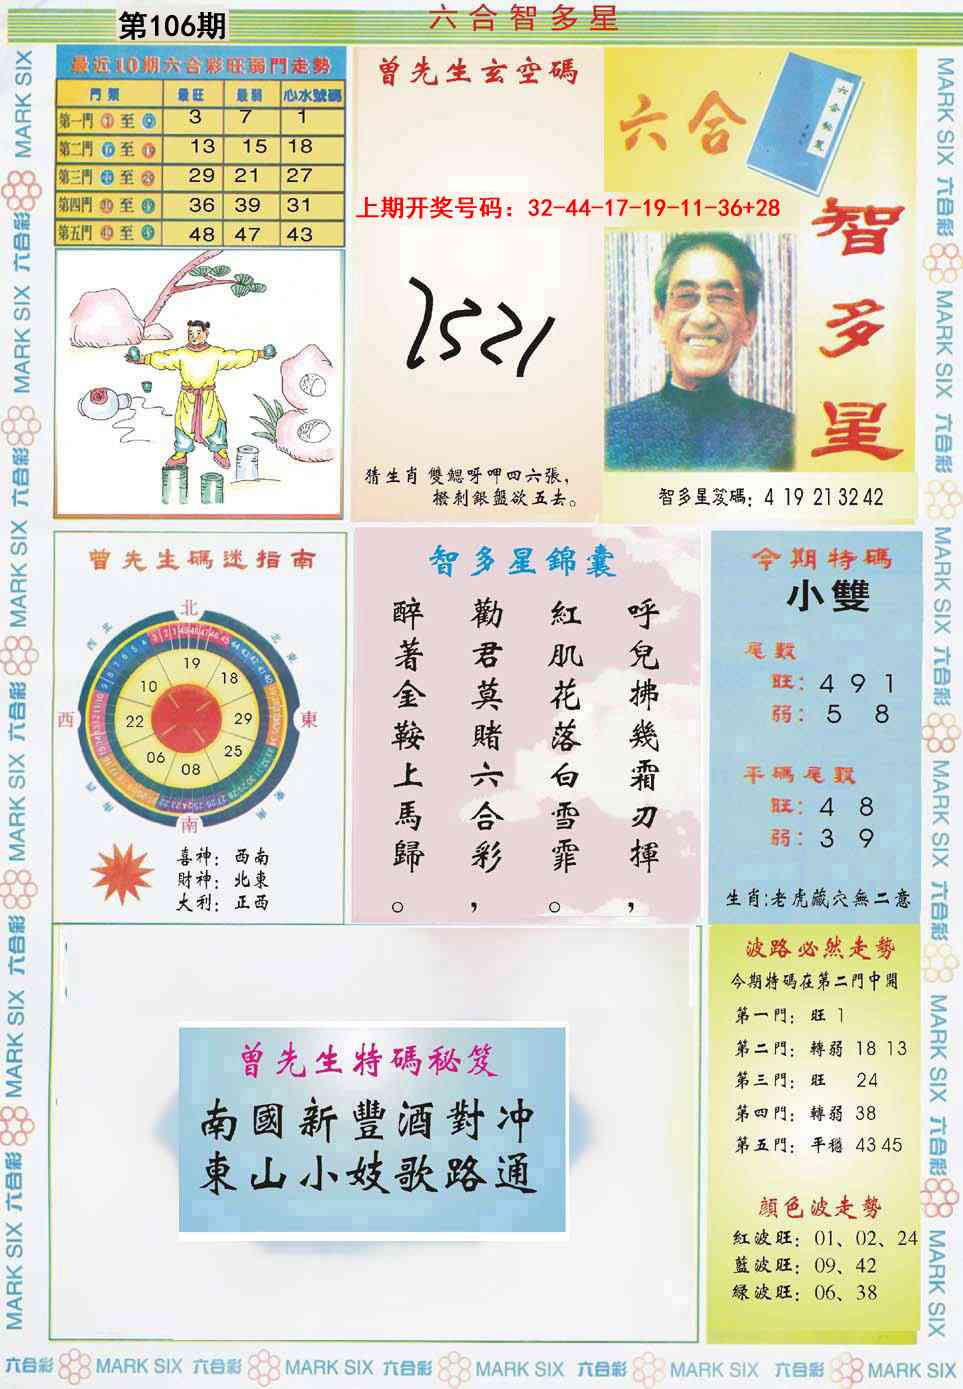 六合智多星
第106期
最近10期六合彩旺弱門走勢
門類 最旺 最弱 心水號碼
第一門 至 3 7 1
第二門 至 13 15 18
第三門 至 29 21 27
第四門 至 36 39 31
第五門 至 48 47 43
曾先生玄空碼
六合
智多星
上期开奖号码：32-44-17-19-11-36+28
猜生肖 雙鰓呀呷四六張，
撥刺銀盤欲五去。
智多星笈碼：4 19 21 32 42
曾先生碼迷指南
北
東
南
西
東北
東南
西南
西北
19
18
29
25
08
06
22
10
喜神：西南
財神：北東
大利：正西
智多星錦囊
呼兒拂幾霜刃揮，
紅肌花落白雪霏。
勸君莫賭六合彩，
醉著金鞍上馬歸。
今期特碼
小雙
尾數
旺：4 9 1
弱：5 8
平碼尾數
旺：4 8
弱：3 9
生肖：老虎藏穴無二意
曾先生特碼秘笈
南國新豐酒對冲
東山小妓歌路通
波路必然走勢
今期特碼在第二門中開
第一門：旺 1
第二門：轉弱 18 13
第三門：旺 24
第四門：轉弱 38
第五門：平穩 43 45
顔色波走勢
紅波旺：01、02、24
藍波旺：09、42
綠波旺：06、38
MARK SIX 六合彩